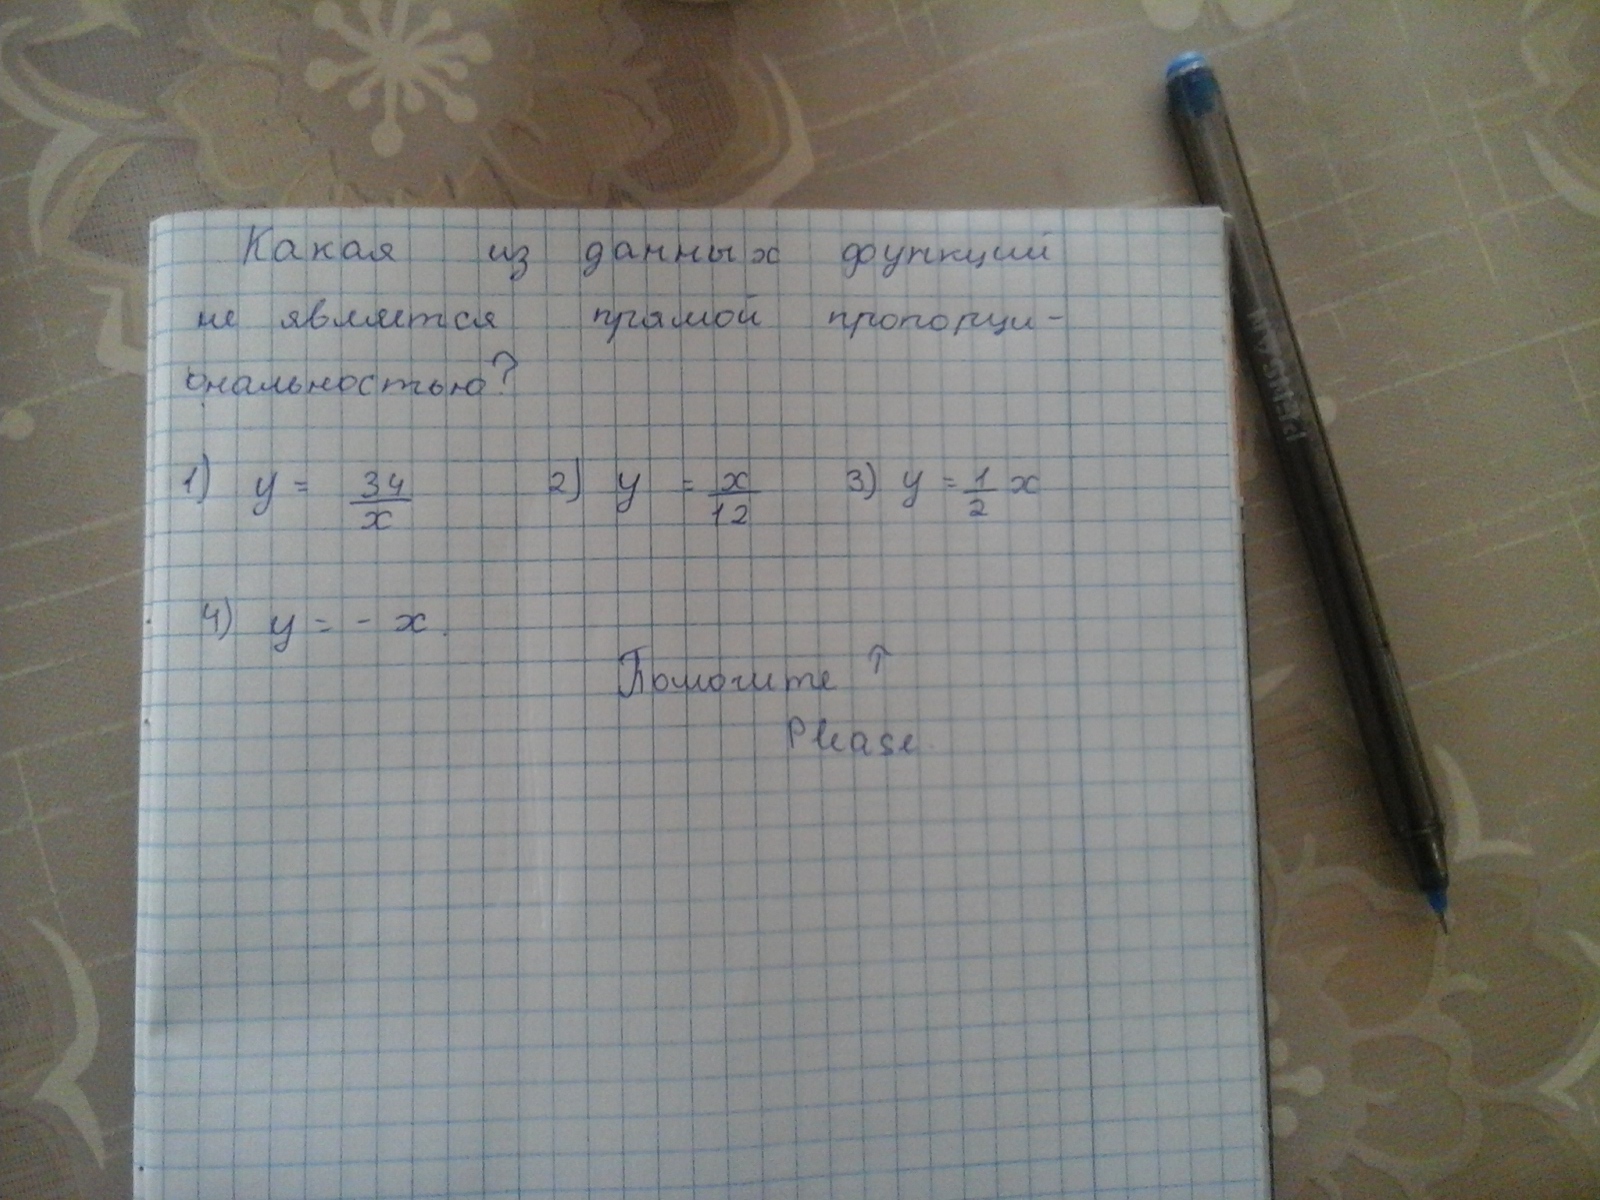 Какая из данных функций
не является прямой пропорци-
ональностью?
1) y = 34/x 2) y = x/12 3) y = 1/2 x
4) y = - x.
Помогите ↑
Please
PENSAN